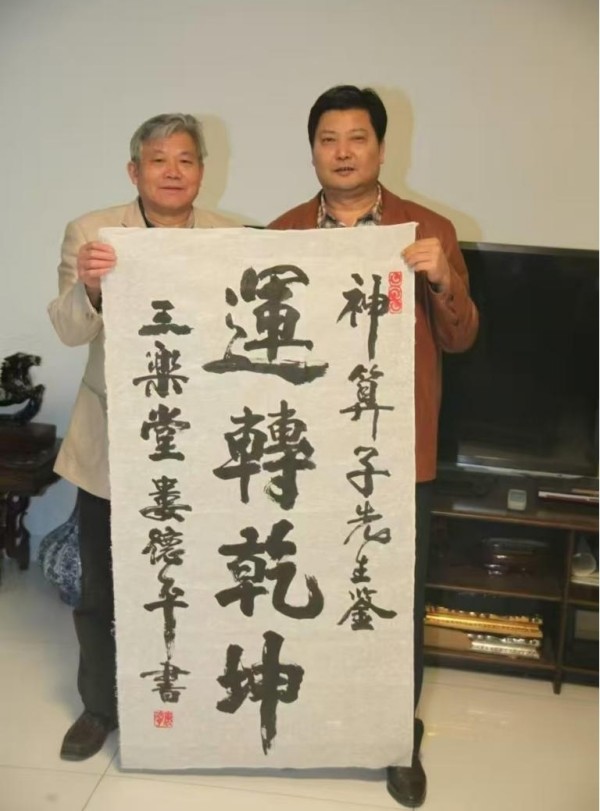 神算子先生鉴
運轉乾坤
三樂堂娄德平書